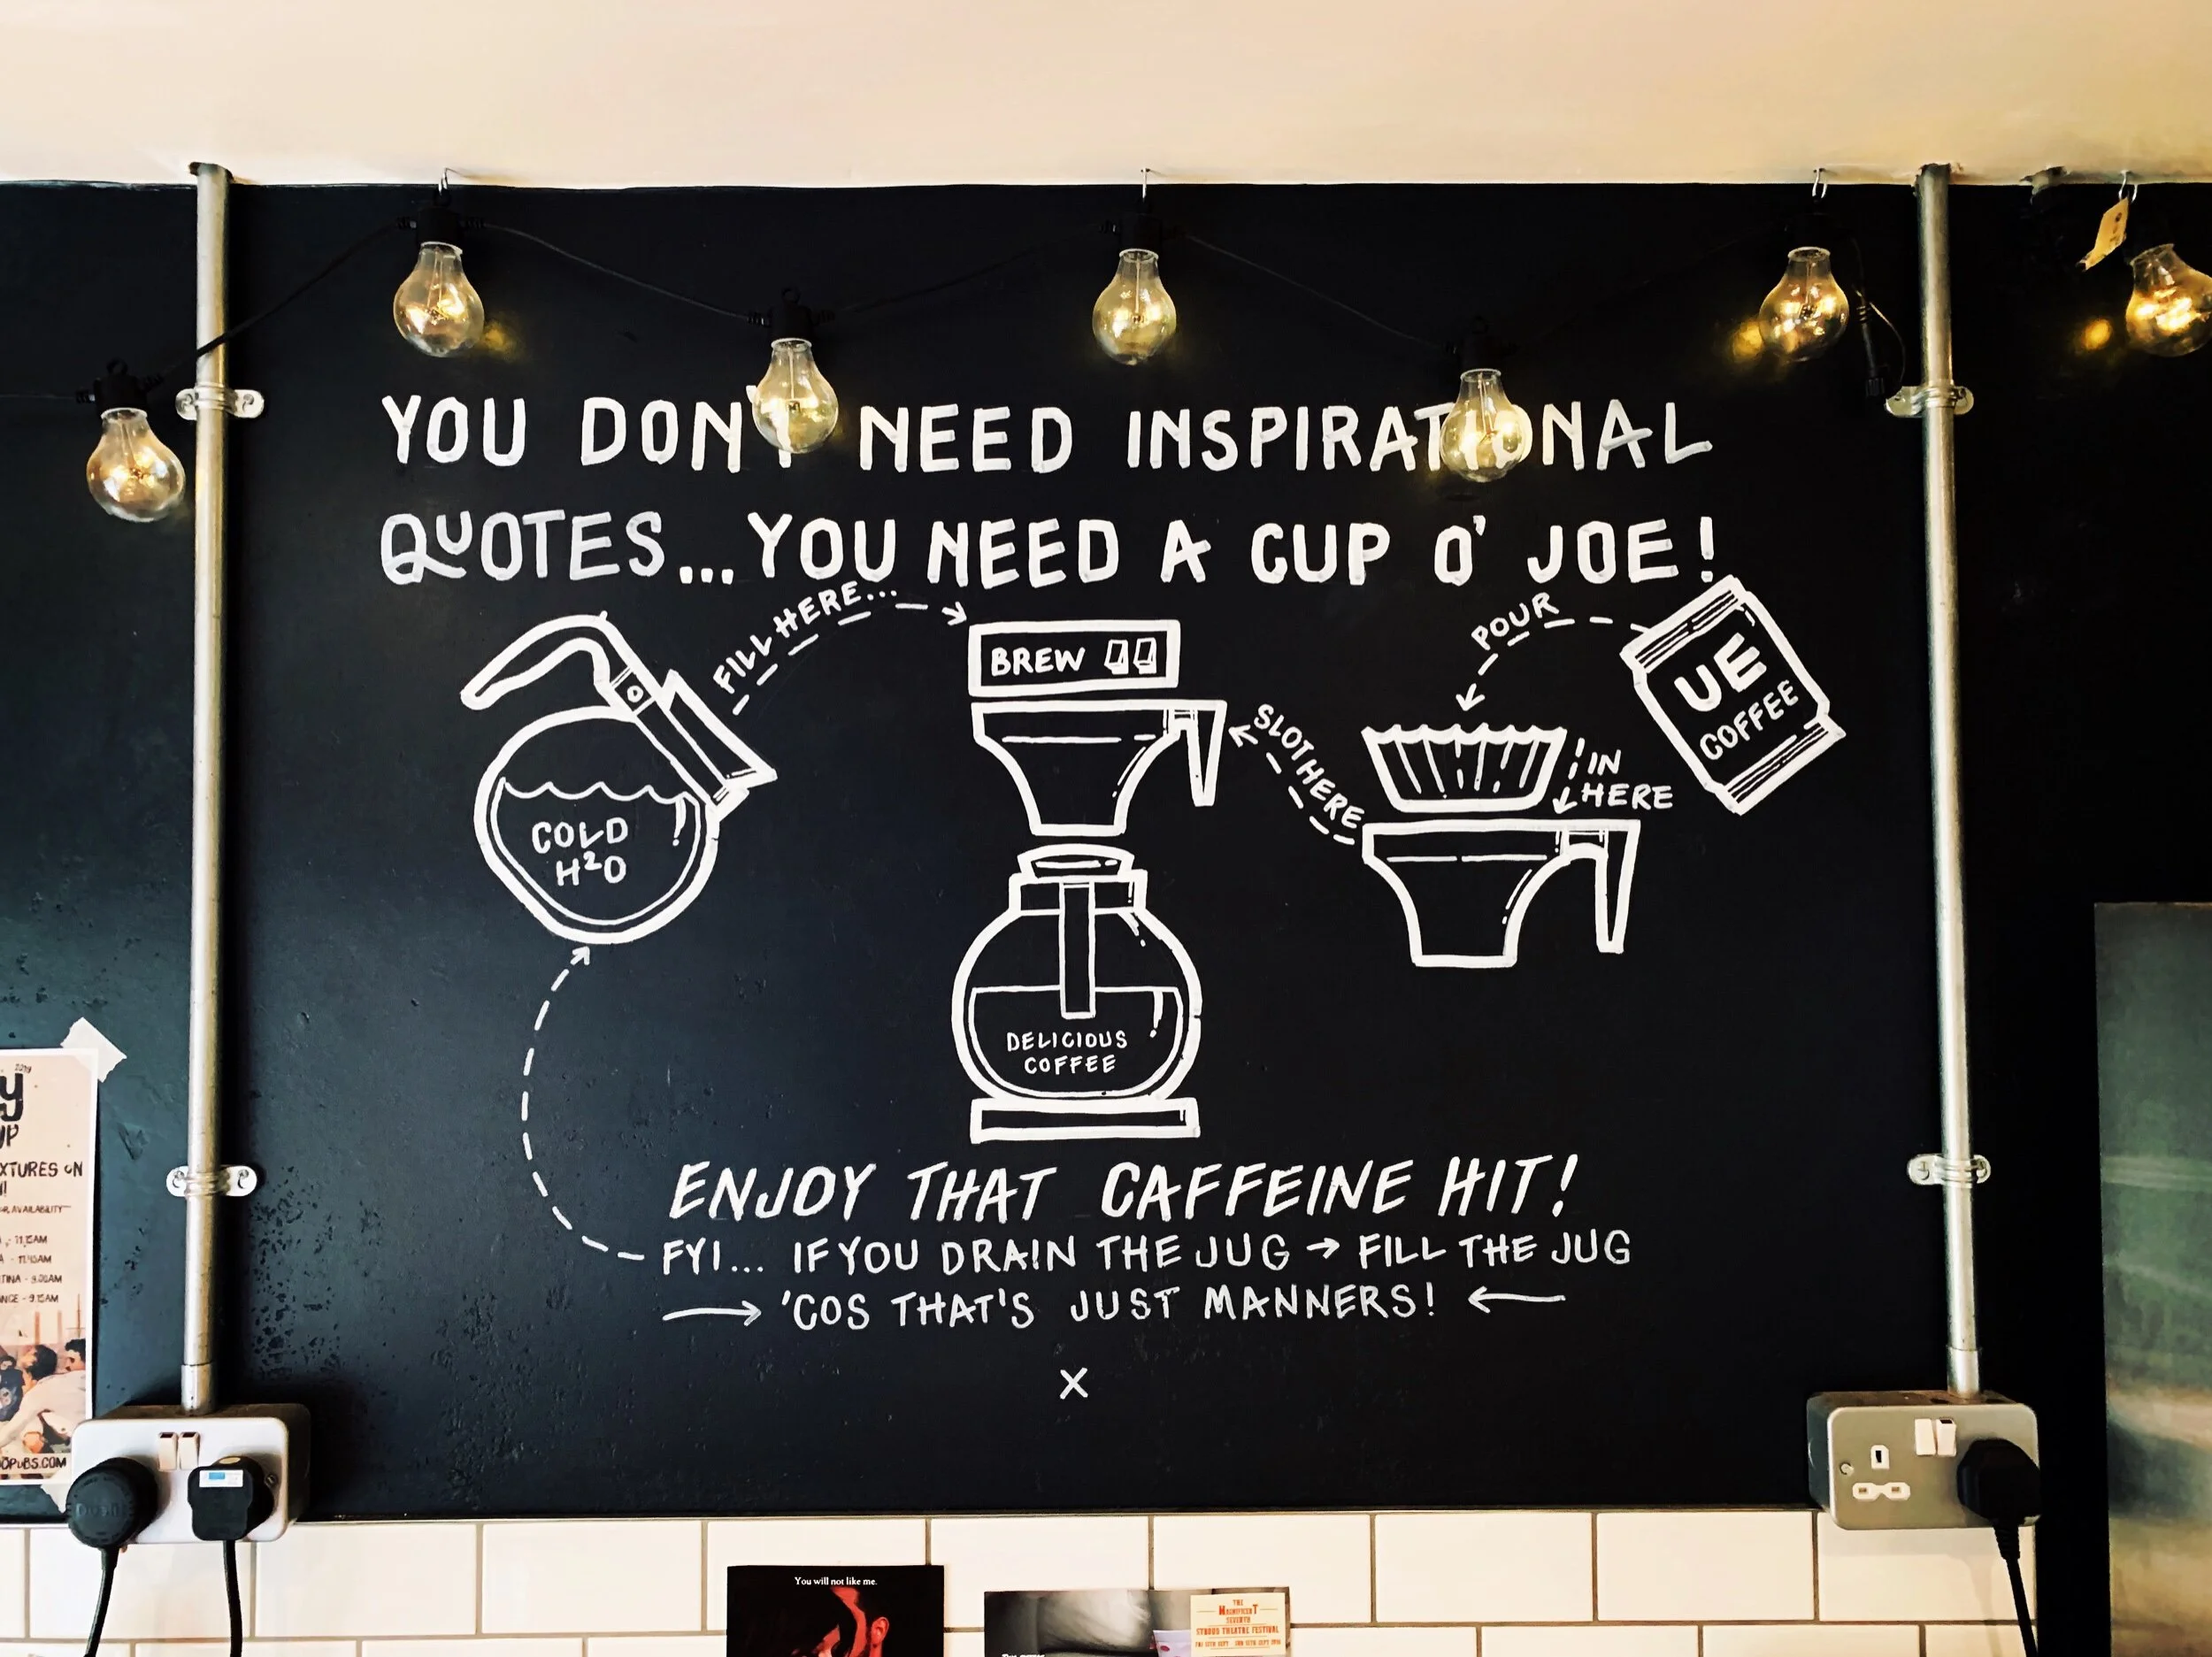 YOU DON'T NEED INSPIRATIONAL
QUOTES...YOU NEED A CUP O' JOE!
FILL HERE...
BREW
POUR
UE
COFFEE
SLOT HERE
IN
HERE
COLD
H²O
DELICIOUS
COFFEE
ENJOY THAT CAFFEINE HIT!
FYI... IF YOU DRAIN THE JUG → FILL THE JUG
→ 'COS THAT'S JUST MANNERS! ←
X
2019
y
UP
XTURES ON
AVAILABILITY
- 11.15AM
A - 11.45AM
TINA - 9.00AM
NCE - 9.15AM
OPUBS.COM
You will not like me.
THE
MAGNIFICENT
SEVENTH
STROUD THEATRE FESTIVAL